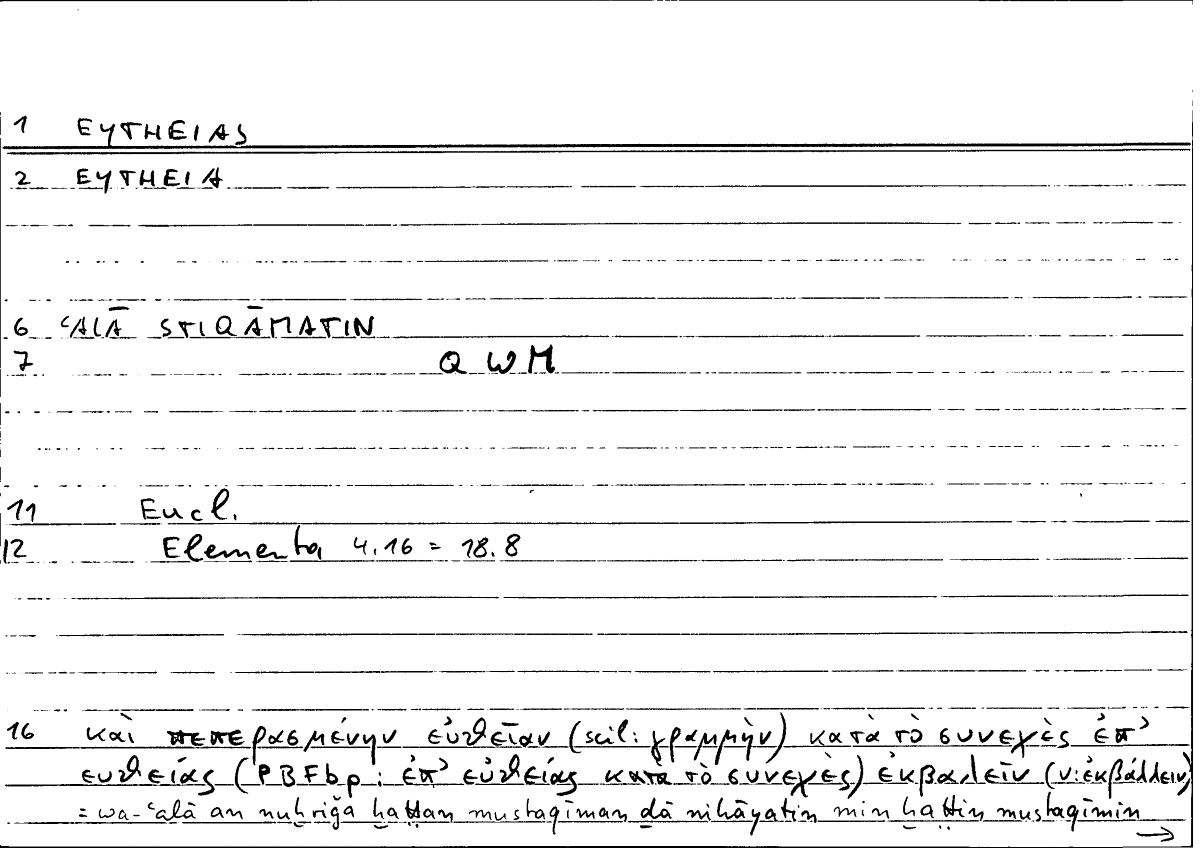 1 EYTHEIAS
2 EYTHEIA
6 ʿALĀ STIQĀMATIN
7 QWM
11 Eucl.
12 Elementa 4.16 = 18.8
16 καὶ πεπερασμένην εὐθεῖαν (scil: γραμμὴν) κατὰ τὸ συνεχὲς ἐπ’
ευθείας (PBFbp: ἐπ’ εὐθείας κατὰ τὸ συνεχὲς) ἐκβαλεῖν (v: ἐκβάλλειν)
= wa-ʿalā an nuḫriǧa ḫaṭṭan mustaqīman ḏā nihāyatin min ḫaṭṭin mustaqīmin
→